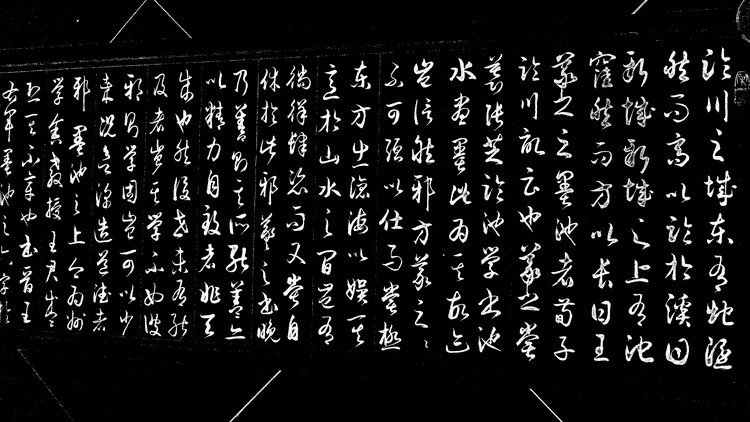 臨川之城東有地隱
然而高以臨於溪曰
新城新城之上有池
窪然而方以長曰王
羲之之墨池者荀子
臨川記云也羲之嘗
慕張芝臨池學書池
水盡墨此為其故迹
豈信然邪方羲之之
不可強以仕而嘗極
東方出滄海以娛其
意於山水之間豈有
徜徉肆恣而又嘗自
休於此邪羲之之書晚
乃善則其所能蓋亦
以精力自致者非天
成也然後世未有能
及者豈其學不如彼
邪則學固豈可以少
哉況欲深造道德者
邪墨池之上今為州
學舍教授王君盛
恐其不章也書晉王
右軍墨池之六字於